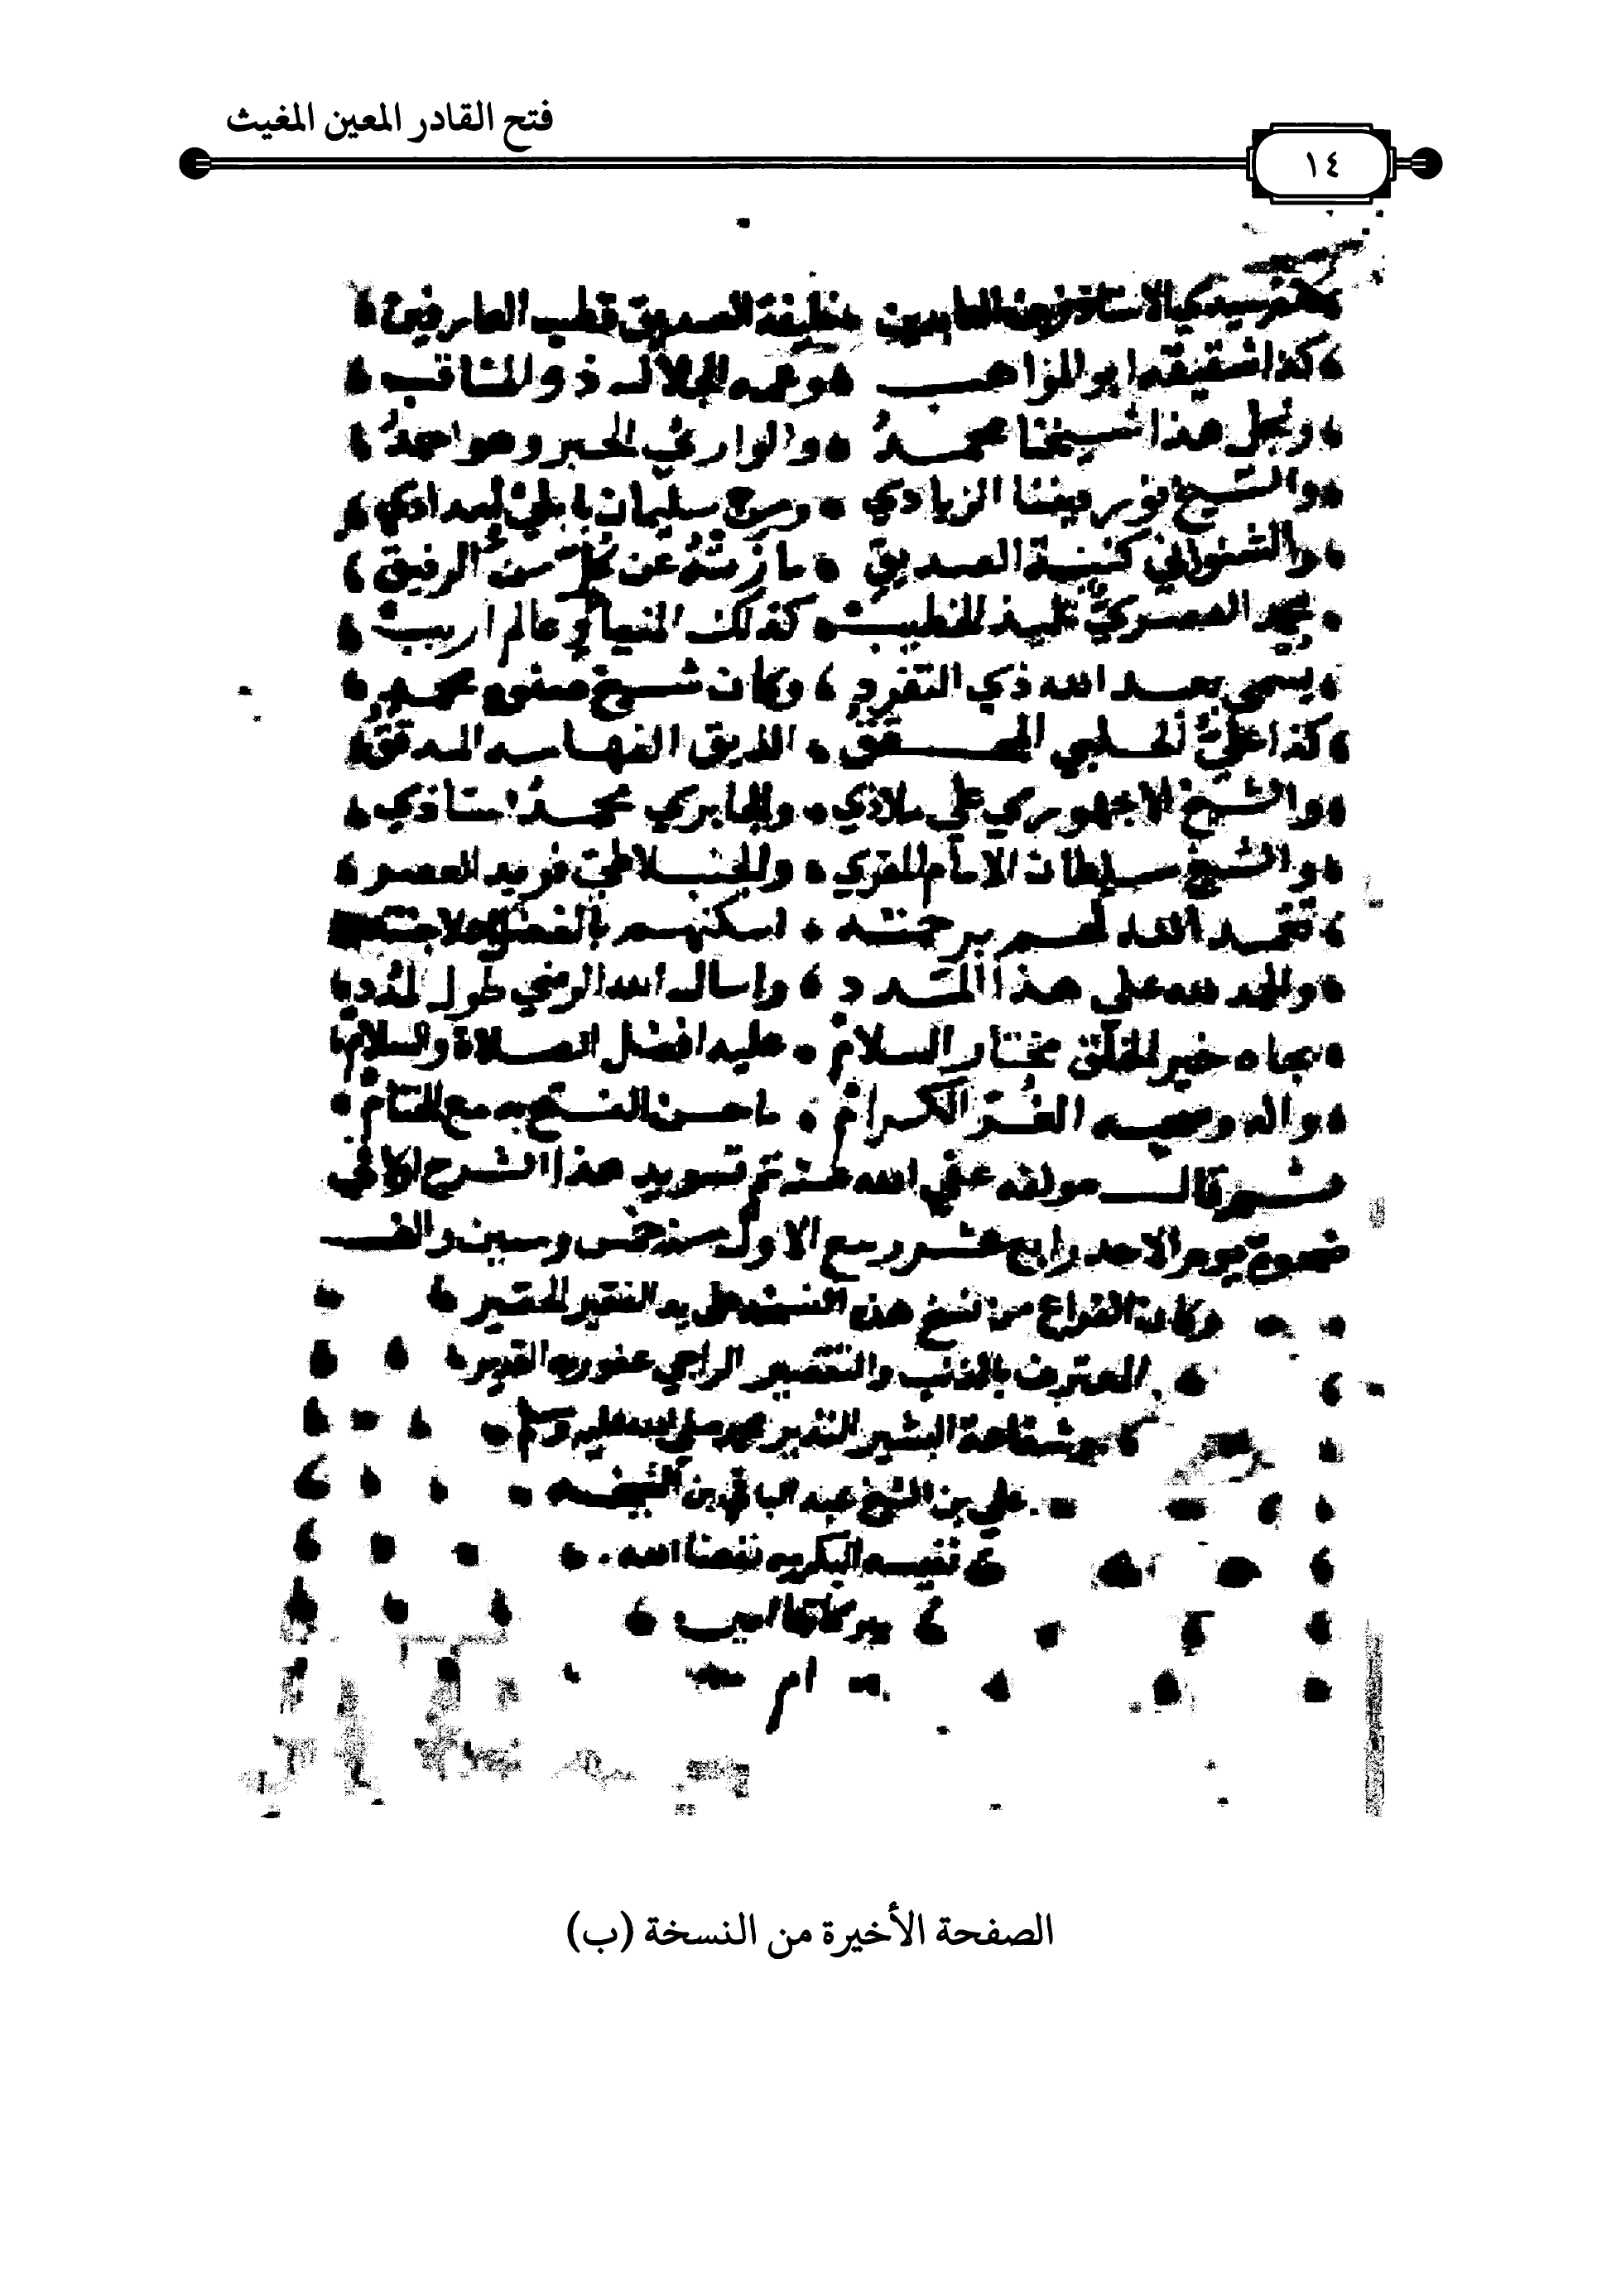 فتح القادر المعين المغيث
١٤
سيدي الاستاذ زين العابدين خليفة الصديق قطب العارفين
كذا شقيقه ابو المواهب وعمه الجلال ذو المناقب
ونجل هذا شيخنا محمدُ والوارثي الحبر وهو احمدُ
والشيخ نور ديننا الزيادي سليمان بابلي
والشنواني كنية الصديق عن الرفيق
محمد البصري تلميذ الخطيب كذلك عالم اريب
يسمى بعبد الله ذي التفرد وكان شيخ محمد
كذا عليُّ الحلبي المحقق الفهامه المدققُ
والشيخ الاجهوري علي ملاذي والجابري محمدُ استاذي
والشيخ سلطان الامام المقري والجنبلاطي فريد العصر
تغمد الله لهم برحمته اسكنهم بالفضل
والحمد لله على هذا المدد واسال الله الرضي طول المدد
بجاه خير الخلق مختار السلام عليه افضل الصلاة والسلام
واله وصحبه الغر الكرام ما حسن الفتح به مع الختام
قال مولفه عفي الله عنه تم تسويد هذا الشرح
ضحوة يوم الاحد رابع عشر ربيع الاول سنة خمس والف
وكان الفراغ من نسخ هذه النسخه على يد الفقير الحقير
المعترف بالذنب والتقصير الراجي عفو ربه القدير
وشفاعة البشير النذير محمد صلى الله عليه وسلم
علي بن الشيخ عبد الباقي بن الشيخه
نفيسه البكريه نفعنا الله
ببركاتها امين
ام
الصفحة الأخيرة من النسخة (ب)